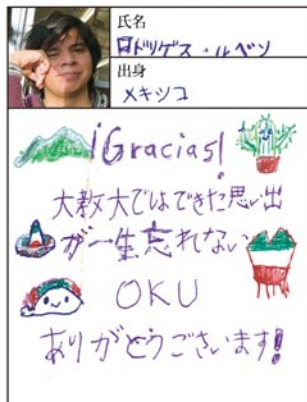 氏名
ロドリゲス・ルベン
出身
メキシコ
¡Gracias!
大教大ではできた思い出
が一生忘れない
OKU
ありがとうございます!